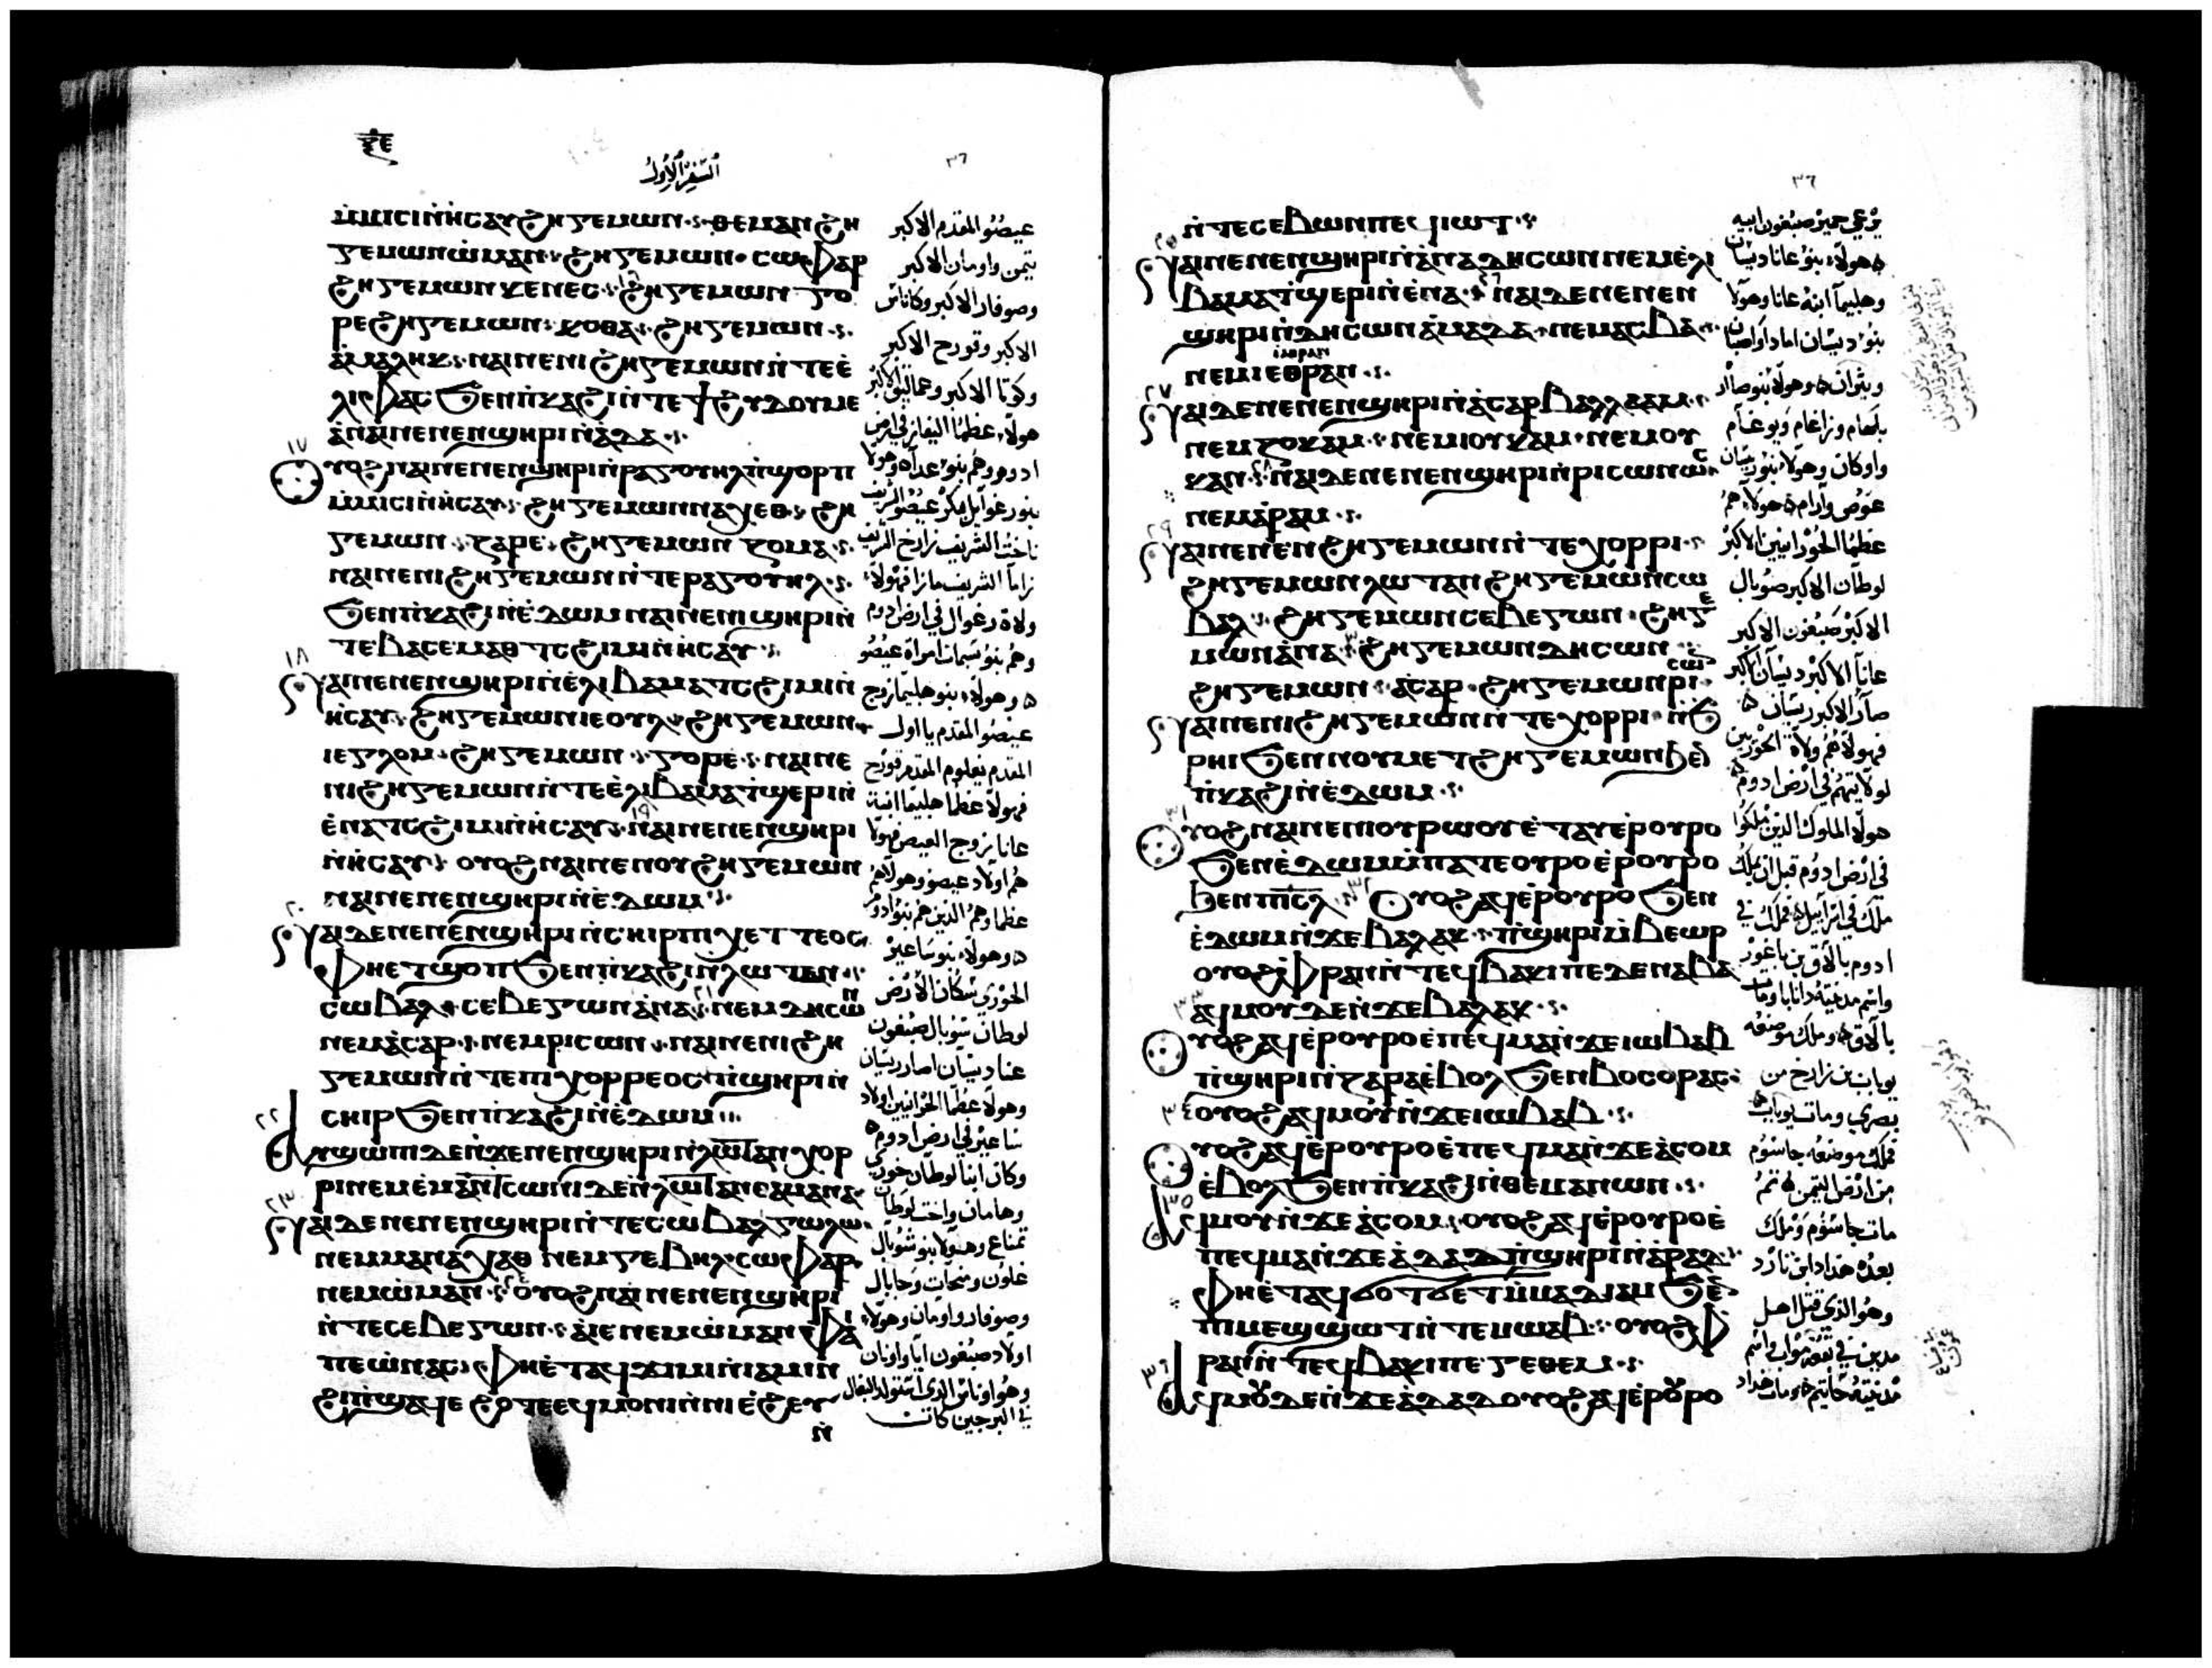 ⲝⲉ
السفر الاول
٣٦
ⲙ̀ⲙⲓⲥⲓ ⲛ̀ⲏⲥⲁⲩ ϩⲏⲅⲉⲙⲱⲛ ⲑⲉⲙⲁⲛ ϩⲏ
ⲅⲉⲙⲱⲛ ⲱ̀ⲙⲁⲛ ϩⲏⲅⲉⲙⲱⲛ ⲥⲱⲫⲁⲣ
ϩⲏⲅⲉⲙⲱⲛ ⲕⲉⲛⲉⲥ ϩⲏⲅⲉⲙⲱⲛ ⲅⲟ
ⲣⲉ ϩⲏⲅⲉⲙⲱⲛ ⲕⲟⲑⲁ ϩⲏⲅⲉⲙⲱⲛ
ⲁ̀ⲙⲁⲗⲏⲕ ⲛⲁⲓ ⲛⲉ ⲛⲓϩⲏⲅⲉⲙⲱⲛ ⲛ̀ⲧⲉ ⲉ̀
ⲗⲓⲫⲁⲥ ϧⲉⲛ ⲡ̀ⲕⲁϩⲓ ⲛ̀ⲧⲉ ϯϩⲩⲇⲟⲩⲙⲉ
ⲁ̀ ⲛⲁⲓ ⲛⲉ ⲛⲉⲛϣⲏⲣⲓ ⲛ̀ⲁ̀ⲇⲁ
١٧
ⲟⲩⲟϩ ⲛⲁⲓ ⲛⲉ ⲛⲉⲛϣⲏⲣⲓ ⲛ̀ⲣⲁⲅⲟⲩⲏⲗ ⲡ̀ϣⲟⲣⲡ
ⲙ̀ⲙⲓⲥⲓ ⲛ̀ⲏⲥⲁⲩ ϩⲏⲅⲉⲙⲱⲛ ⲛⲁⲭⲉⲑ ϩⲏ
ⲅⲉⲙⲱⲛ ⲍⲁⲣⲉ ϩⲏⲅⲉⲙⲱⲛ ⲍⲟⲙⲁ
ⲛⲁⲓ ⲛⲉ ⲛⲓϩⲏⲅⲉⲙⲱⲛ ⲛ̀ⲧⲉ ⲣⲁⲅⲟⲩⲏⲗ
ϧⲉⲛ ⲡ̀ⲕⲁϩⲓ ⲛ̀ⲉ̀ⲇⲱⲙ ⲛⲁⲓ ⲛⲉ ⲛⲓϣⲏⲣⲓ ⲛ̀
ⲧⲉ ⲃⲁⲥⲉⲙⲁⲑ ⲧⲥϩⲓⲙⲓ ⲛ̀ⲏⲥⲁⲩ
١٨
ⲛⲁⲓ ⲛⲉ ⲛⲉⲛϣⲏⲣⲓ ⲛ̀ⲉ̀ⲗⲓⲃⲁⲙⲁ ⲧⲥϩⲓⲙⲓ ⲛ̀
ⲏⲥⲁⲩ ϩⲏⲅⲉⲙⲱⲛ ⲓⲉⲟⲩⲗ ϩⲏⲅⲉⲙⲱⲛ
ⲓⲉⲅⲗⲟⲙ ϩⲏⲅⲉⲙⲱⲛ ⲅⲟⲣⲉ ⲛⲁⲓ ⲛⲉ
ⲛⲓϩⲏⲅⲉⲙⲱⲛ ⲛ̀ⲧⲉ ⲉ̀ⲗⲓⲃⲁⲙⲁ ⲧ̀ϣⲉⲣⲓ ⲛ̀
ⲉ̀ⲛⲁ ⲧⲥϩⲓⲙⲓ ⲛ̀ⲏⲥⲁⲩ ١٩ ⲛⲁⲓ ⲛⲉ ⲛⲉⲛϣⲏⲣⲓ
ⲛ̀ⲏⲥⲁⲩ ⲟⲩⲟϩ ⲛⲁⲓ ⲛⲉ ⲛⲟⲩϩⲏⲅⲉⲙⲱⲛ
ⲛⲁⲓ ⲛⲉ ⲛⲉⲛϣⲏⲣⲓ ⲛ̀ⲉ̀ⲇⲱⲙ
٢٠
ⲛⲁⲓ ⲇⲉ ⲛⲉ ⲛⲉⲛϣⲏⲣⲓ ⲛ̀ⲥⲏⲓⲣ ⲡⲓⲭⲉⲧⲧⲉⲟⲥ
ⲫⲏ ⲉⲧϣⲟⲡ ϧⲉⲛ ⲡ̀ⲕⲁϩⲓ ⲛ̀ⲗⲱⲧⲁⲛ
ⲥⲱⲃⲁⲗ ⲥⲉⲃⲉⲅⲱⲛ ⲁ̀ⲛⲁ ⲛⲉⲙ ⲇⲏⲥⲱⲛ
ⲛⲉⲙ ⲁ̀ⲥⲁⲣ ⲛⲉⲙ ⲣⲓⲥⲱⲛ ⲛⲁⲓ ⲛⲉ ⲛⲓϩⲏ
ⲅⲉⲙⲱⲛ ⲛ̀ⲧⲉ ⲡⲓⲭⲟⲣⲣⲉⲟⲥ ⲡ̀ϣⲏⲣⲓ ⲛ̀
ⲥⲏⲓⲣ ϧⲉⲛ ⲡ̀ⲕⲁϩⲓ ⲛ̀ⲉ̀ⲇⲱⲙ
٢٢
ⲁⲩϣⲱⲡⲓ ⲇⲉ ⲛ̀ϫⲉ ⲛⲉⲛϣⲏⲣⲓ ⲛ̀ⲗⲱⲧⲁⲛ ⲭⲟⲣ
ⲣⲓ ⲛⲉⲙ ⲉ̀ⲙⲁⲛ ⲧⲥⲱⲛⲓ ⲇⲉ ⲛ̀ⲗⲱⲧⲁⲛ ⲑⲁⲙⲁⲛⲁ
٢٣
ⲛⲁⲓ ⲇⲉ ⲛⲉ ⲛⲉⲛϣⲏⲣⲓ ⲛ̀ⲧⲉ ⲥⲱⲃⲁⲗ ⲅⲱⲗⲱ
ⲛⲉⲙ ⲙⲁⲛⲁⲭⲁⲑ ⲛⲉⲙ ⲅⲉⲃⲏⲗ ⲥⲱⲫⲁⲣ
ⲛⲉⲙ ⲱ̀ⲙⲁⲛ ٢٤ ⲟⲩⲟϩ ⲛⲁⲓ ⲛⲉ ⲛⲉⲛϣⲏⲣⲓ
ⲛ̀ⲧⲉ ⲥⲉⲃⲉⲅⲱⲛ ⲁ̀ⲓⲉ ⲛⲉⲙ ⲱ̀ⲙⲁⲛ ⲫⲁⲓ
ⲡⲉ ⲱ̀ⲛⲁⲥ ⲫⲏ ⲉ̀ⲧⲁϥϫⲓⲙⲓ ⲛ̀ⲓⲁⲙⲓⲛ
ϩⲓ ⲡ̀ϣⲁϥⲉ ϩⲟⲧⲉ ⲉϥⲙⲟⲛⲓ ⲛ̀ⲛⲓⲉ̀ϩⲉⲩ
ⲛ̀
عيصو المقدم الاكبر
تيمن واومان الاكبر
وصوفار الاكبر وكاناس
الاكبر وقورح الاكبر
وكوثا الاكبر وعماليق الاكبر
هولاء عظما اليفاز في ارض
ادوم وهم بنو عدا وهولا
بنو رغوايل بكر عيصو الشريف
ناخث الشريف زارح الشريف
زاما الشريف مازا فهولاء
ولاة رغوال في ارض ادوم
وهم بنو بسمات امراة عيصو
وهولاء بنو هليبما زوج
عيصو المقدم يااول
المقدم يعلوم المقدم قورح
فهولا عظما هليبما ابنة
عانا زوج العيص فهولا
هم اولاد عيصو وهولاهم
عظما وهم الذين هم بنو ادوم
وهولاء بنو ساعير
الحوري سكان الارض
لوطان شوبال صبغون
عنا ديشان اصار ريشان
وهولا عظما الحورانيين اولاد
ساعير في ارض ادوم
وكان ابنا لوطان خوري
وهامان واخت لوطان
تمناع وهولا بنو شوبال
غلون ومنحات وجابال
وصوفار واومان وهولاء
اولاد صبغون ايا واونان
وهو اوناس الذي استولد البغال
في البر حين كانت
٣٦
ⲛ̀ⲧⲉ ⲥⲉⲃⲱⲛ ⲡⲉϥⲓⲱⲧ
٢٥
ⲛⲁⲓ ⲛⲉ ⲛⲉⲛϣⲏⲣⲓ ⲛ̀ⲁ̀ⲛⲁ ⲇⲏⲥⲱⲛ ⲛⲉⲙ ⲉ̀ⲗⲓ
ⲃⲁⲙⲁ ⲧ̀ϣⲉⲣⲓ ⲛ̀ⲉ̀ⲛⲁ ٢٦ ⲛⲁⲓ ⲇⲉ ⲛⲉ ⲛⲉⲛ
ϣⲏⲣⲓ ⲛ̀ⲇⲏⲥⲱⲛ ⲁ̀ⲙⲁⲇⲁ ⲛⲉⲙ ⲁⲥⲃⲁ
ⲓⲁⲣⲁⲛ
ⲛⲉⲙ ⲓⲉⲑⲣⲁⲛ
٢٧
ⲛⲁⲓ ⲇⲉ ⲛⲉ ⲛⲉⲛϣⲏⲣⲓ ⲛ̀ⲁ̀ⲥⲁⲣ ⲃⲁⲗⲗⲁⲁⲙ
ⲛⲉⲙ ⲍⲟⲩⲕⲁⲙ ⲛⲉⲙ ⲓⲟⲩⲕⲁⲙ ⲛⲉⲙ ⲟⲩ
ⲕⲁⲛ ٢٨ ⲛⲁⲓ ⲇⲉ ⲛⲉ ⲛⲉⲛϣⲏⲣⲓ ⲛ̀ⲣⲓⲥⲱⲛ ⲱⲥ
ⲛⲉⲙ ⲁ̀ⲣⲁⲙ
٢٩
ⲛⲁⲓ ⲛⲉ ⲛⲉⲛϩⲏⲅⲉⲙⲱⲛ ⲛ̀ⲧⲉ ⲭⲟⲣⲣⲓ
ϩⲏⲅⲉⲙⲱⲛ ⲗⲱⲧⲁⲛ ϩⲏⲅⲉⲙⲱⲛ ⲥⲱ
ⲃⲁⲗ ϩⲏⲅⲉⲙⲱⲛ ⲥⲉⲃⲉⲅⲱⲛ ϩⲏⲅⲉ
ⲙⲱⲛ ⲁ̀ⲛⲁ ٣٠ ϩⲏⲅⲉⲙⲱⲛ ⲇⲏⲥⲱⲛ
ϩⲏⲅⲉⲙⲱⲛ ⲁ̀ⲥⲁⲣ ϩⲏⲅⲉⲙⲱⲛ ⲣⲓⲥⲱⲛ
ⲛⲁⲓ ⲛⲉ ⲛⲓϩⲏⲅⲉⲙⲱⲛ ⲛ̀ⲧⲉ ⲭⲟⲣⲣⲓ ⲛ̀ϧ
ⲣⲏⲓ ϧⲉⲛ ⲛⲟⲩⲙⲉⲧϩⲏⲅⲉⲙⲱⲛ ϧⲉⲛ
ⲡ̀ⲕⲁϩⲓ ⲛ̀ⲉ̀ⲇⲱⲙ
٣١
ⲟⲩⲟϩ ⲛⲁⲓ ⲛⲉ ⲛⲓⲟⲩⲣⲱⲟⲩ ⲉ̀ⲧⲁⲩⲉⲣⲟⲩⲣⲟ
ϧⲉⲛ ⲉ̀ⲇⲱⲙ ⲙ̀ⲡⲁⲧⲉ ⲟⲩⲣⲟ ⲉⲣⲟⲩⲣⲟ
ϧⲉⲛ ⲡⲓⲥⲗ ٣٢ ⲟⲩⲟϩ ⲁϥⲉⲣⲟⲩⲣⲟ ϧⲉⲛ
ⲉ̀ⲇⲱⲙ ⲛ̀ϫⲉ ⲃⲁⲗⲁⲕ ⲡ̀ϣⲏⲣⲓ ⲙ̀ⲃⲉⲱⲣ
ⲟⲩⲟϩ ⲫ̀ⲣⲁⲛ ⲛ̀ⲧⲉϥⲃⲁⲕⲓ ⲡⲉ ⲇⲉⲛⲁⲃⲁ
٣٣ ⲁϥⲙⲟⲩ ⲇⲉ ⲛ̀ϫⲉ ⲃⲁⲗⲁⲕ
ⲟⲩⲟϩ ⲁϥⲉⲣⲟⲩⲣⲟ ⲉ̀ⲡⲉϥⲙⲁ ⲛ̀ϫⲉ ⲓⲱⲃⲁⲃ
ⲡ̀ϣⲏⲣⲓ ⲛ̀ⲍⲁⲣⲁ ⲉ̀ⲃⲟⲗ ϧⲉⲛ ⲃⲟⲥⲟⲣⲁⲥ
٣٤ ⲟⲩⲟϩ ⲁϥⲙⲟⲩ ⲛ̀ϫⲉ ⲓⲱⲃⲁⲃ
ⲟⲩⲟϩ ⲁϥⲉⲣⲟⲩⲣⲟ ⲉ̀ⲡⲉϥⲙⲁ ⲛ̀ϫⲉ ⲁ̀ⲥⲟⲙ
ⲉ̀ⲃⲟⲗ ϧⲉⲛ ⲡ̀ⲕⲁϩⲓ ⲛ̀ⲑⲉⲙⲁⲛⲱⲛ
٣٥
ⲁϥⲙⲟⲩ ⲛ̀ϫⲉ ⲁ̀ⲥⲟⲙ ⲟⲩⲟϩ ⲁϥⲉⲣⲟⲩⲣⲟ ⲉ̀
ⲡⲉϥⲙⲁ ⲛ̀ϫⲉ ⲁ̀ⲇⲁⲇ ⲡ̀ϣⲏⲣⲓ ⲛ̀ⲃⲁⲣⲁⲇ
ⲫⲏ ⲉ̀ⲧⲁϥϭⲟⲧϭⲉⲧ ⲙ̀ⲙⲁⲇⲓⲁⲙ ϧⲉⲛ
ⲧ̀ⲙⲉϣϣⲱϯ ⲛ̀ⲧⲉ ⲙⲱⲁⲃ ⲟⲩⲟϩ ⲫ̀
ⲣⲁⲛ ⲛ̀ⲧⲉϥⲃⲁⲕⲓ ⲡⲉ ⲅⲉⲑⲉⲙ
٣٦
ⲁϥⲙⲟⲩ ⲇⲉ ⲛ̀ϫⲉ ⲁ̀ⲇⲁⲇ ⲟⲩⲟϩ ⲁϥⲉⲣⲟⲩⲣⲟ
يرعي حمير صبغون ابيه
هولاء بنو عانا ديشان
وهليبما ابنة عانا وهولا
بنو ديشان امادا واصبان
ويثران وهولا بنو صاار
بلعام وزاغام ويوغام
واوكان وهولا بنو ريشان
عوص وارام هولاء هم
عظما الحورانيين الاكبر
لوطان الاكبر صوبال
الاكبر صبغون الاكبر
عانا الاكبر ديشان الاكبر
صاار الاكبر ريشان
فهولاهم ولاة الحوريين
لولايتهم في ارض ادوم
هولا الملوك الذين ملكوا
في ارض ادوم قبل ان يملك
ملك في اسراييل فملك في
ادوم بالاق بن باغور
واسم مدينته دانابا ومات
بالاق وملك موضعه
يوباب بن زارح من
بصري ومات يوباب
فملك موضعه جاسوم
من ارض التيمن ثم
مات جاسوم وملك
بعده هداد ابن بارد
وهو الذي قتل اهل
مدين في بقعة مواب واسم
مدينته جاتيم ومات هداد